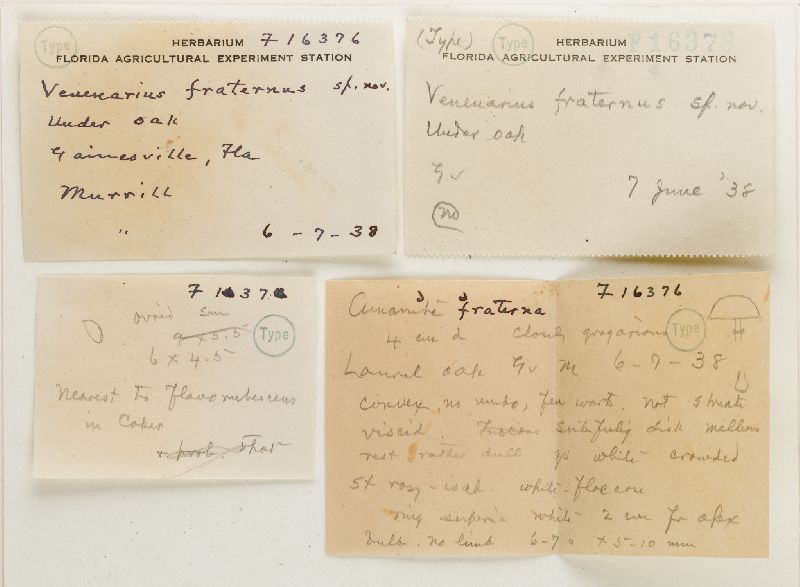 Type
HERBARIUM F16376
FLORIDA AGRICULTURAL EXPERIMENT STATION
Venenarius fraternus sp. nov.
Under oak
Gainesville, Fla
Murrill
" 6-7-38
(Type) Type
HERBARIUM F16376
FLORIDA AGRICULTURAL EXPERIMENT STATION
Venenarius fraternus sp. nov.
Under oak
Gv
7 June '38
no
F16376
ovoid sm
9 x 5.5
Type
6 x 4.5
Nearest to flavorubescens
in Coker
prob. that
F16376
Amanita fraterna
4 cm d closely gregarious Type
Laurel oak Gv M 6-7-38
convex, no umbo, few warts, not striate
viscid disk melleous
rest rather dull white crowded
st rosy-isab. white-floccose
ring superior white 2 cm fr apex
bulb. no limb 6-7 x 5-10 mm